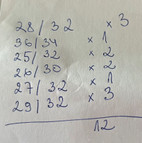 28/32 x 3
36/34 x 1
25/32 x 2
26/30 x 2
27/32 x 1
29/32 x 3
12